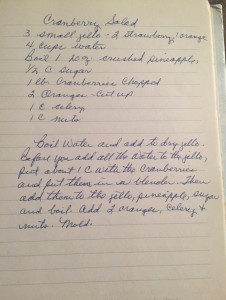 Cranberry Salad
3 small jello - 2 strawberry 1 orange
4 cups water
Boil 1 20 oz. crushed pineapple,
1/2 C sugar
1 lb. Cranberries Chopped
2 Oranges - Cut up
1 C celery
1 C nuts
Boil Water and add to dry jello.
Before you add all the water to the jello,
put about 1 C with the Cranberries
and put them in a blender. Then
add them to the jello, pineapple, sugar
and boil. Add 2 oranges, Celery +
nuts. Mold.